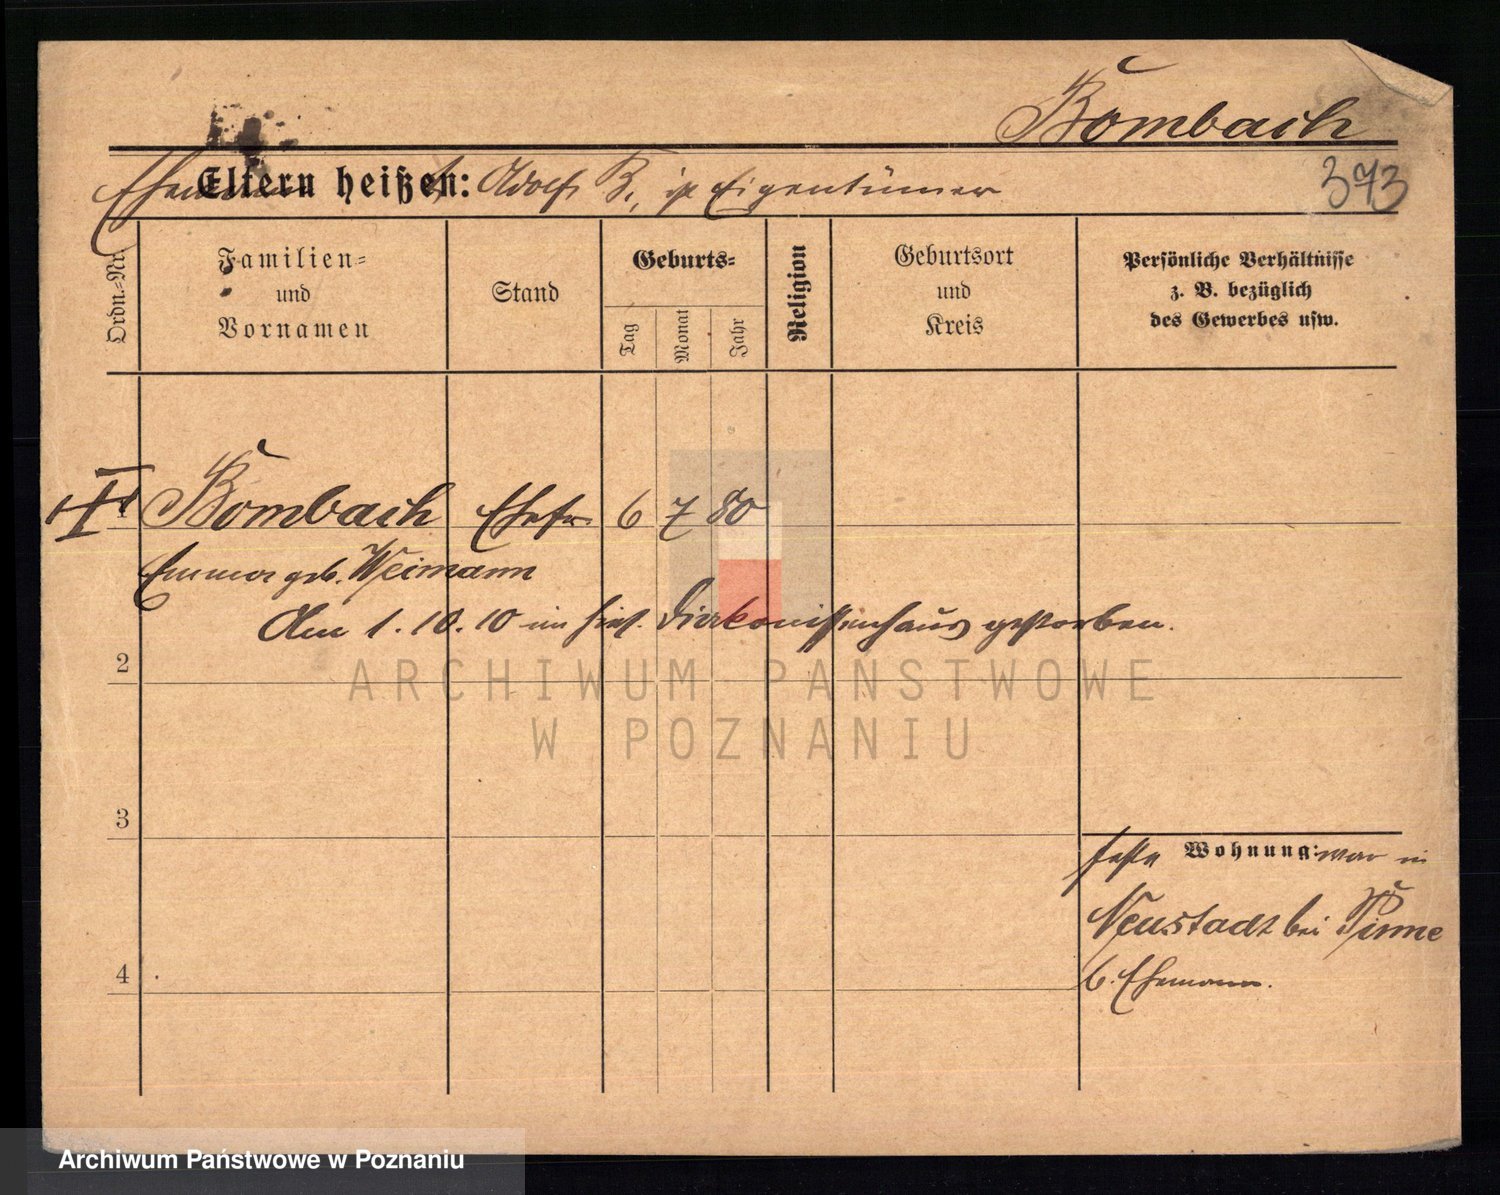 Bombach
Ehemann Eltern heißen: Adolf B., ist Eigentümer
373
Ordn.-Nr.
Familien-
und
Vornamen
Stand
Geburts-
Tag
Monat
Jahr
Religion
Geburtsort
und
Kreis
Persönliche Verhältnisse
z. B. bezüglich
des Gewerbes usw.
1 Bombach Ehefr. 6 7 80
Emma geb. Weimann
Am 1.10.10 im hies. Diakonissenhaus gestorben.
2
ARCHIWUM PAŃSTWOWE
W POZNANIU
3
feste Wohnung: war in
Neustadt bei Pinne
b. Ehemann.
4
Archiwum Państwowe w Poznaniu